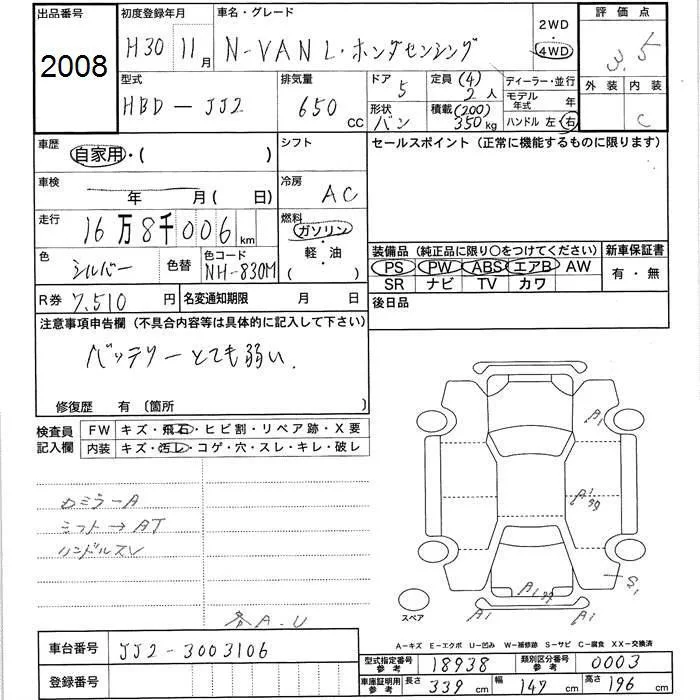 出品番号 初度登録年月 車名・グレード 2WD・4WD 評価点
2008 H30 11月 N-VAN L・ホンダセンシング 3.5
型式 排気量 ドア 定員 (4) ディーラー・並行 外装 内装
HBD-JJ2 650 CC 5 2人 モデル年式 年 C
形状 積載 (200) ハンドル 左・右
バン 350kg
車歴 自家用・( ) シフト セールスポイント（正常に機能するものに限ります）
車検 年 月( 日) 冷房 AC
走行 16万8千006km 燃料 ガソリン・軽油 ( )
色 シルバー 色替 色コード NH-830M
装備品（純正品に限り○をつけてください） 新車保証書
PS PW ABS エアB AW 有・無
SR ナビ TV カワ
R券 7,510円 名変通知期限 月 日 後日品
注意事項申告欄（不具合内容等は具体的に記入して下さい）
バッテリーとても弱い.
修復歴 有〔箇所 〕
検査員記入欄 FW キズ・飛石・ヒビ割・リペア跡・X要
内装 キズ・汚レ・コゲ・穴・スレ・キレ・破レ
ミラーA
シフト→AT
ハンドルスレ
各A.U
A1
A1
S1
A1
A1
A1
スペア
A-キズ E-エクボ U-凹み W-補修跡 S-サビ C-腐食 XX-交換済
車台番号 JJ2-3003106
型式指定番号参考 18938 類別区分番号参考 0003
登録番号
車庫証明用参考 長さ 339cm 幅 147cm 高さ 196cm